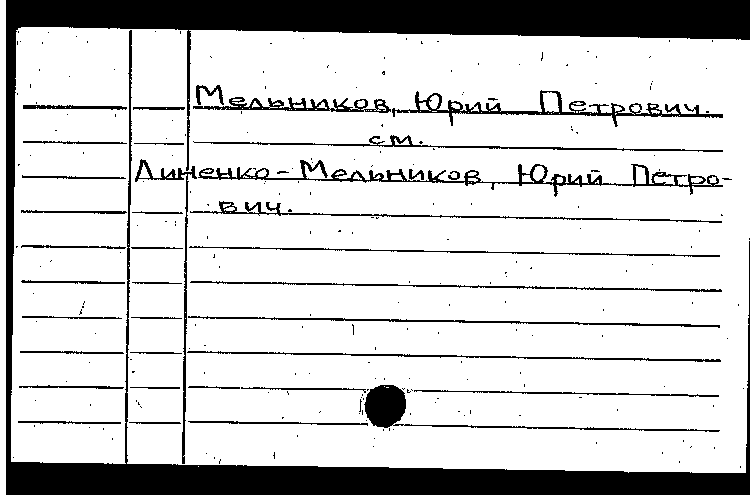 Мельников, Юрий Петрович.
см.
Линенко-Мельников, Юрий Петро-
вич.